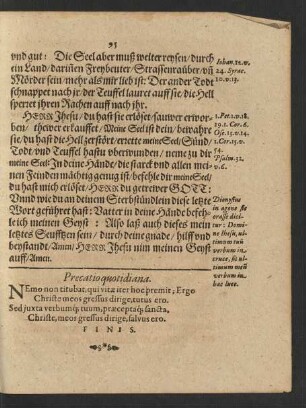 93
vnd gut: Die Seel aber muß weiter reysen / durch
ein Land / darinnen Freybeuter / Strassenrauber / vñ
Mörder sein / mehr als mir lieb ist: Der ander Todt
schnappet nach jr / der Teuffel lauret auff sie / die Hell
sperret jhren Rachen auff nach jhr.
HERR Jhesu / du hast sie erlöset / sauwer erwor-
ben / thewer erkauffet / Meine Seel ist dein / bewahre
sie / du hast die Hell zerstöret / errette meine Seel / Sünd /
Todt vnd Teuffel hastu vberwunden / neme zu dir
meine Seel: In deine Hände / die starck vnd allen mei-
nen Feinden mächtig genug ist / befehle dir meine Seel /
du hast mich erlöset / HERR du getrewer GOTT:
Vnnd wie du an deinem Sterbstündlein diese letzte
Wort geführet hast: Vatter in deine Hände befeh-
le ich meinen Geyst: Also laß auch dieses mein
letztes Seufftzen sein / durch deine gnade / hilff vnd
beystand / Amen / HERR Jhesu nim meinen Geyst
auff / Amen.
Iohan. 12. v.
24. Syrac.
10. v. 13.
1. Pet. 1. v. 18.
19. 1. Cor. 6.
Ose. 13. v. 14.
1. Cor. 15. v.
54.
Psalm. 31.
v. 6.
in agone
dici-
tur: Domi-
ne Iesu, ul-
timum tuũ
verbum in
cruce, sit ul-
timum meũ
verbum in
hac luce.
Precatio quotidiana.
NEmo non titubat, qui vitæ iter hoc premit, Ergo
Christe meos gressus dirige, tutus ero.
Sed juxta verbumq; tuum, præceptaq; sancta,
Christe, meos gressus dirige, salvus ero.
FINIS.